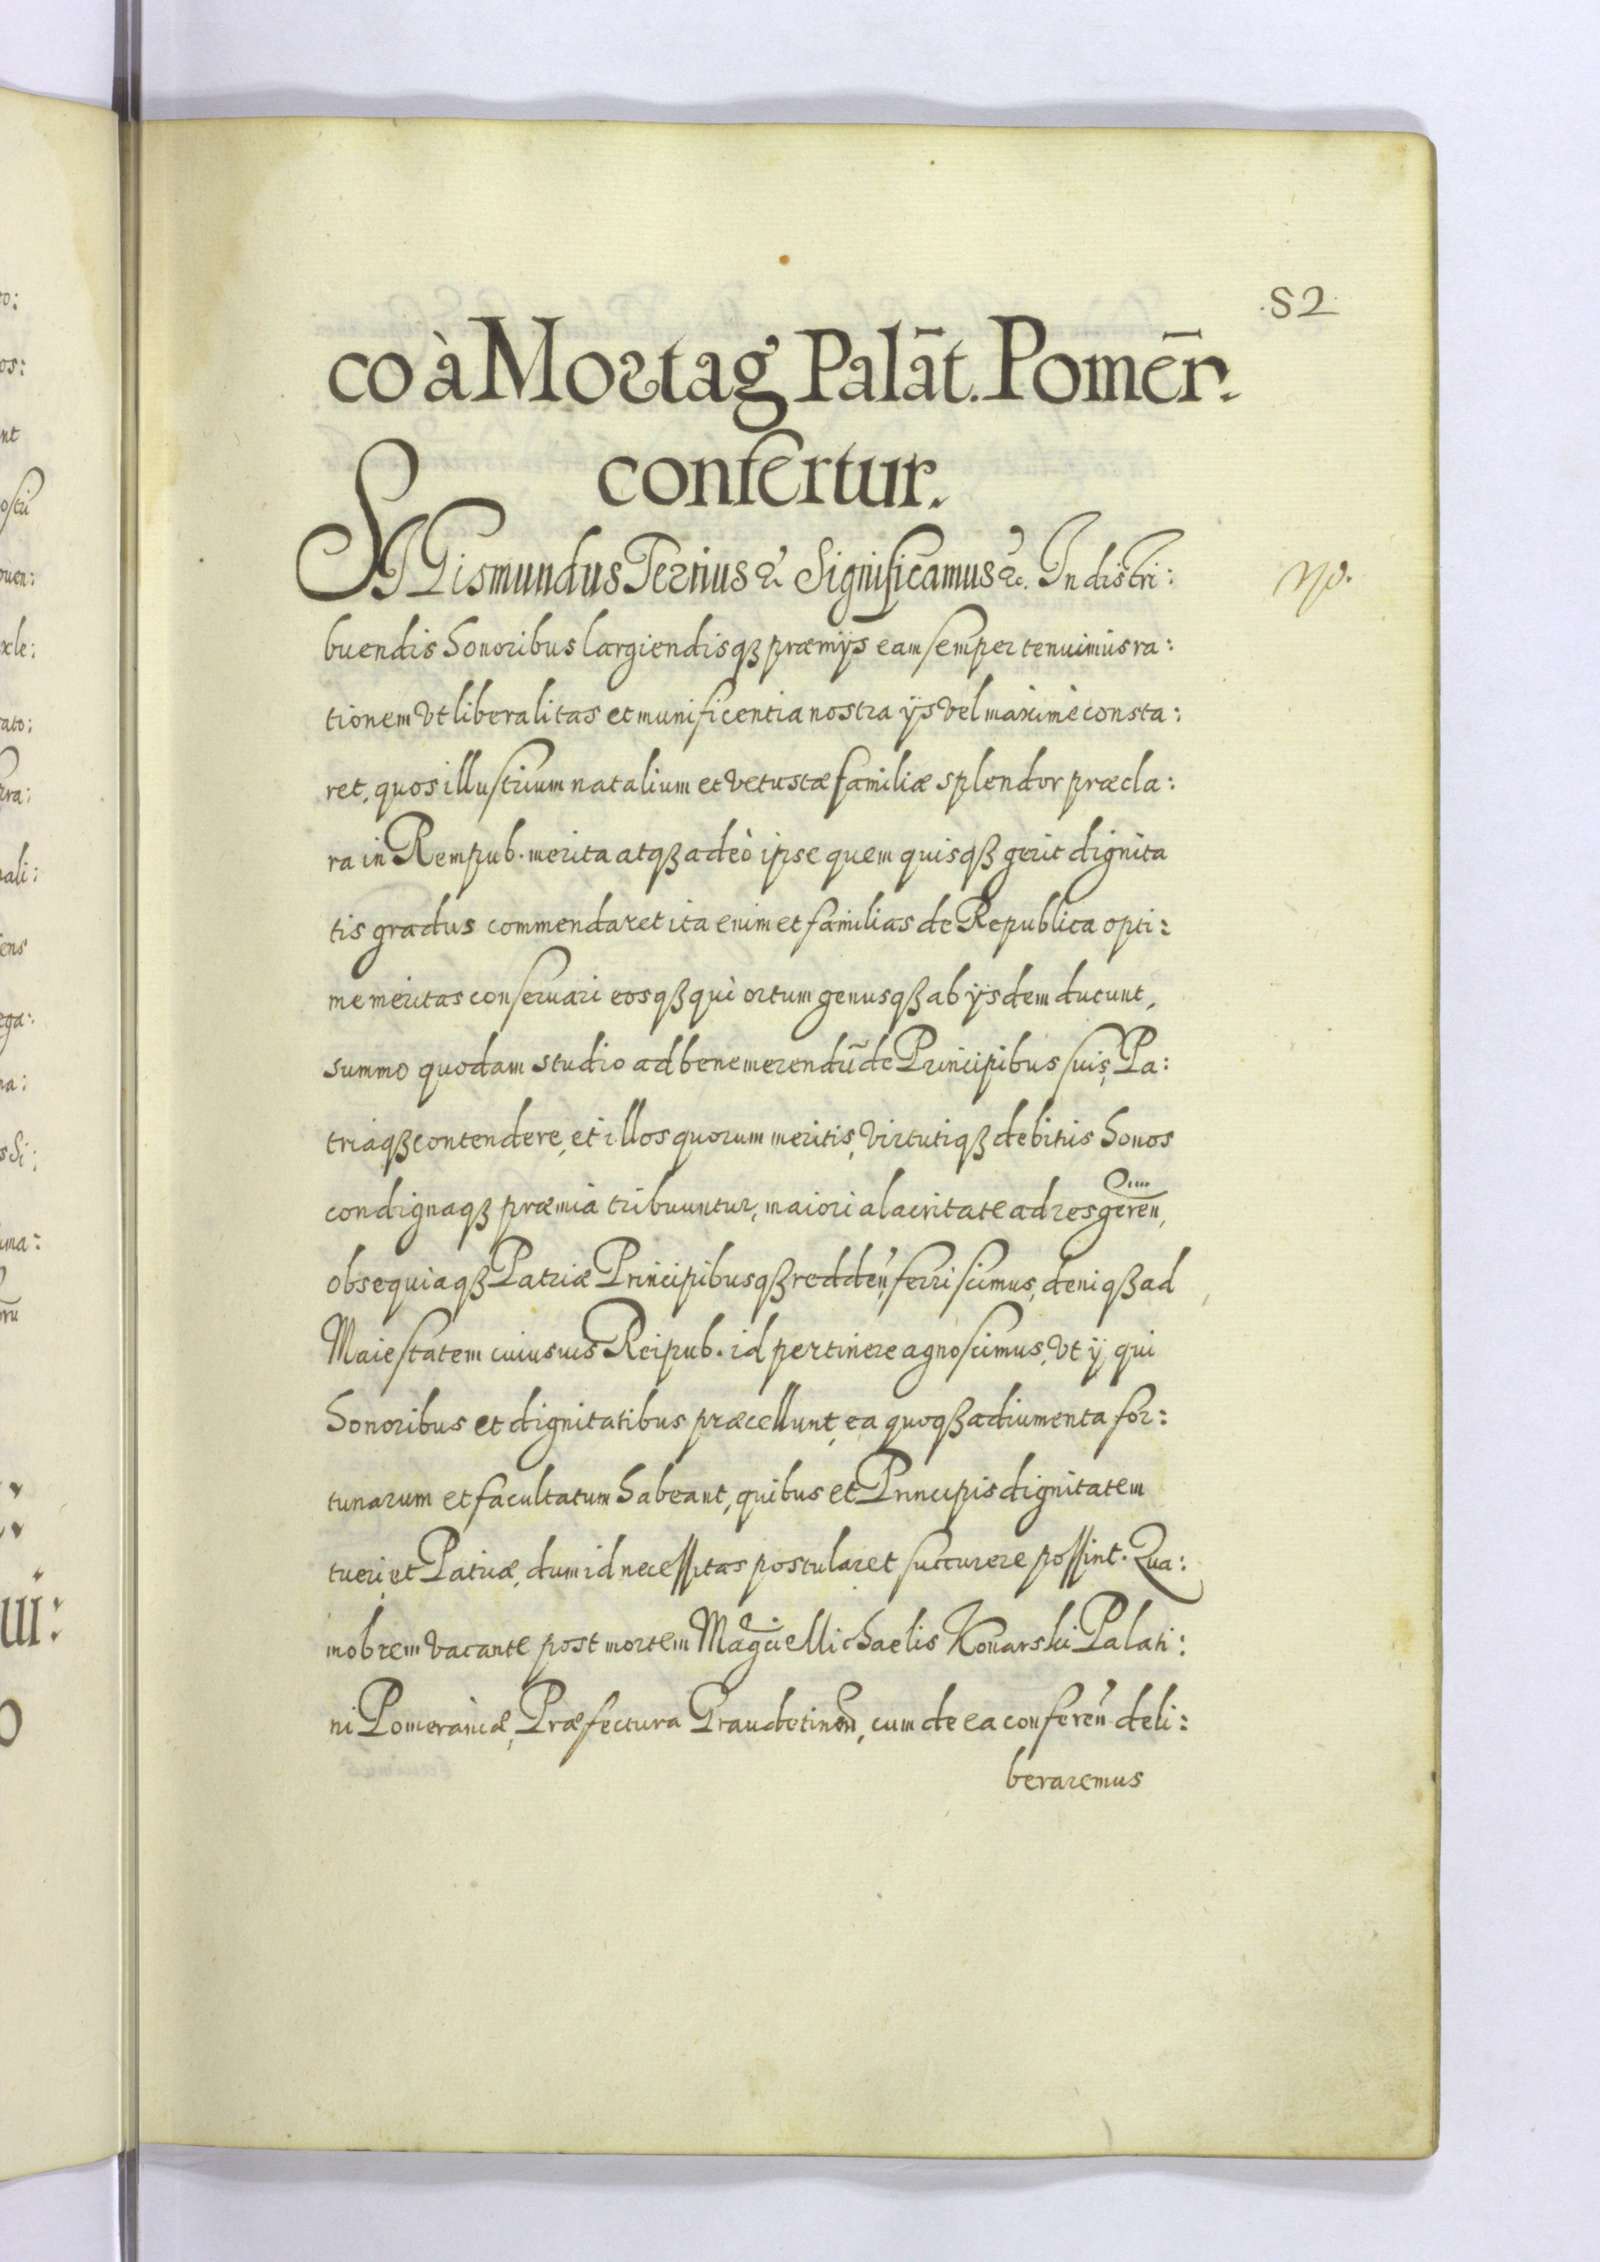 52
co à Mortag Palāt. Pomēr.
confertur.
SIGismundus Tertius &c. Significamus &c. In distri:
No.
buendis honoribus largiendisq3 præmijs eam semper tenuimus ra:
tionem vt liberalitas et munificentia nostra ijs vel maximè consta:
ret, quos illustrium natalium et vetustæ familiæ splendor præcla:
ra in Rempub. merita atq3 adeò ipse quem quisq3 gerit dignita
tis gradus commendaret ita enim et familias de Republica opti:
me meritas conseruari eosq3 qui ortum genusq3 ab ijsdem ducunt,
summo quodam studio ad benemerendū de Principibus suis, Pa:
triaq3 contendere, et illos quorum meritis, virtutiq3 debitus honos
condignaq3 præmia tribuuntur, maiori alacritate ad res gereñ,
obsequiaq3 Patriæ Principibusq3 reddeñ, ferri scimus, deniq3 ad
Maiestatem cuiusuis Reipub. id pertinere agnoscimus, vt ij qui
honoribus et dignitatibus præcellunt, ea quoq3 adiumenta for:
tunarum et facultatum habeant, quibus et Principis dignitatem
tueri, et Patriæ, dum id necessitas postularet succurere possint. Qua:
mobrem vacante post mortem Magci Michaelis Konarski Palati:
ni Pomeraniæ, Præfectura Graudetineñ, cum de ea confereñ deli:
beraremus